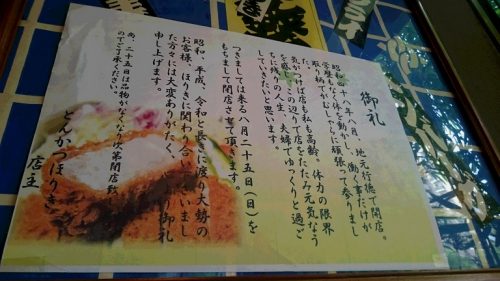 御礼
昭和四十八年八月、地元行徳で開店。
学歴もなく体を動かし、働く事だけが
取り柄でがむしゃらに頑張って参りまし
た。
気がつけば店も私も高齢。体力の限界
を感じ、この辺りで店をたたみ元気なう
ちに残りの人生、夫婦でゆっくりと過ご
していきたいと思います。
つきましては来る八月二十五日(日)を
もちまして閉店させて頂きます。
昭和、平成、令和と長きに渡り大勢の
お客様、ほりきに関わり合いましまし
た方々には大変ありがたく、御礼
申し上げます。
尚、二十五日は品物がなくなり次第閉店致し
のでご了承ください。
とんかつほりき
店主